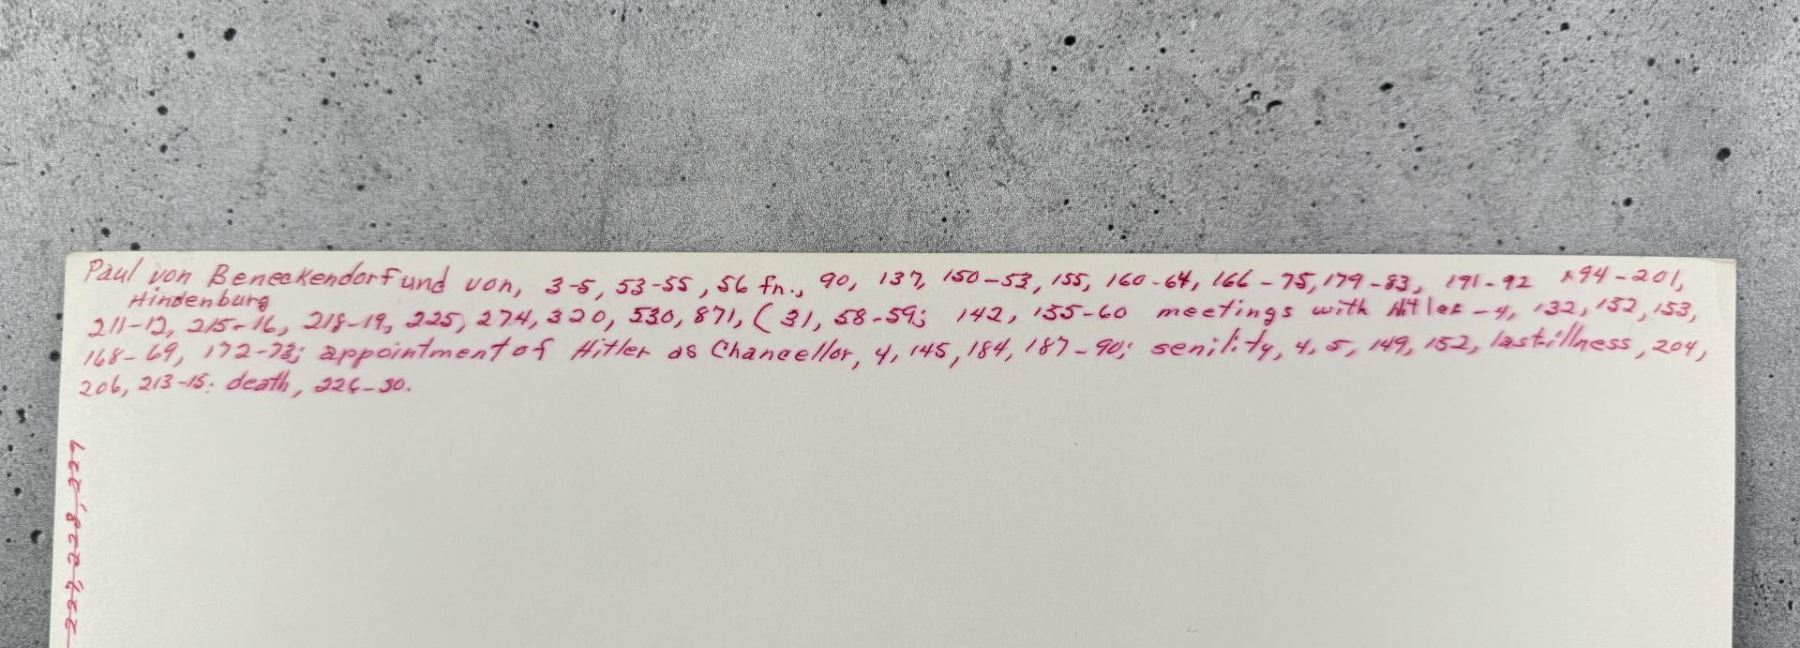 Paul von Beneckendorf und von, 3-5, 53-55, 56 fn., 90, 137, 150-53, 155, 160-64, 166-75, 179-83, 191-92 194-201,
Hindenburg
211-12, 215-16, 218-19, 225, 274, 320, 530, 871, (31, 58-59; 142, 155-60 meetings with Hitler-4, 132, 152, 153,
168-69, 172-73; appointment of Hitler as Chancellor, 4, 145, 184, 187-90; senility, 4, 5, 149, 152, last illness, 204,
206, 213-15. death, 226-30.